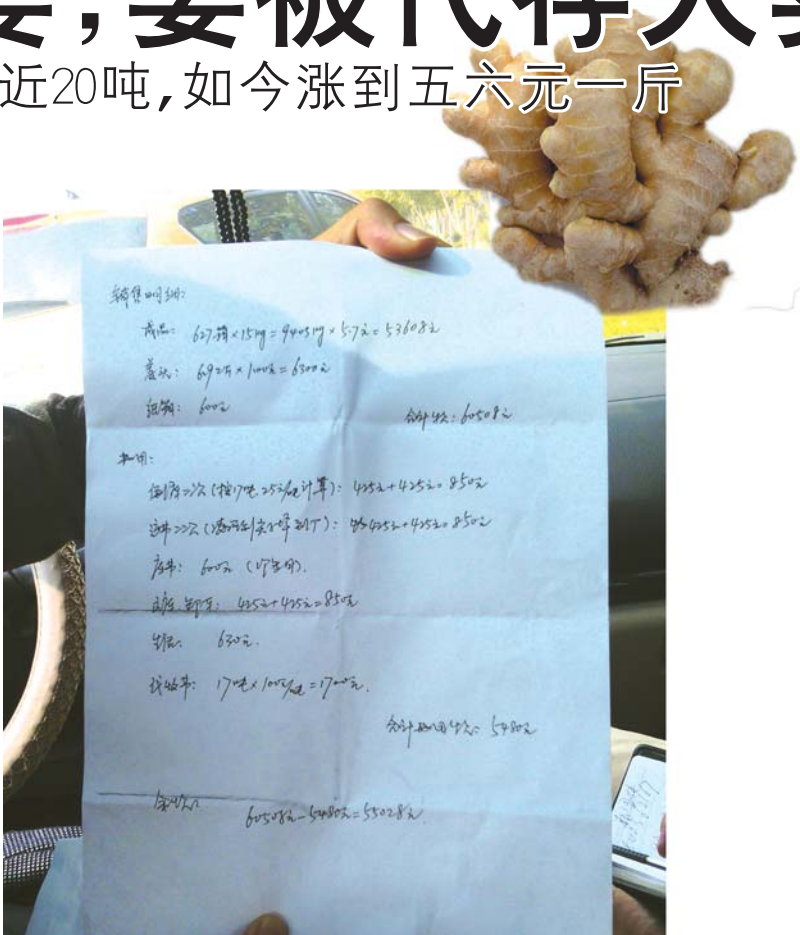 姜被代存人
近20吨,如今涨到五六元一斤
销售明细:
成品: 627箱×15kg=9405kg×5.7元=53608元
姜头: ×100元=6300元
纸箱: 600元
合计: 60508元
费用:
倒库二次(按17吨 25元/吨计算): 425元+425元=850元
二次( ): 425元+425元=850元
库费: 600元
卸车: 425元+425元=850元
生活: 630元.
代收费: 17吨×100元/吨=1700元.
合计费用: 5480元
60508元-5480元=55028元